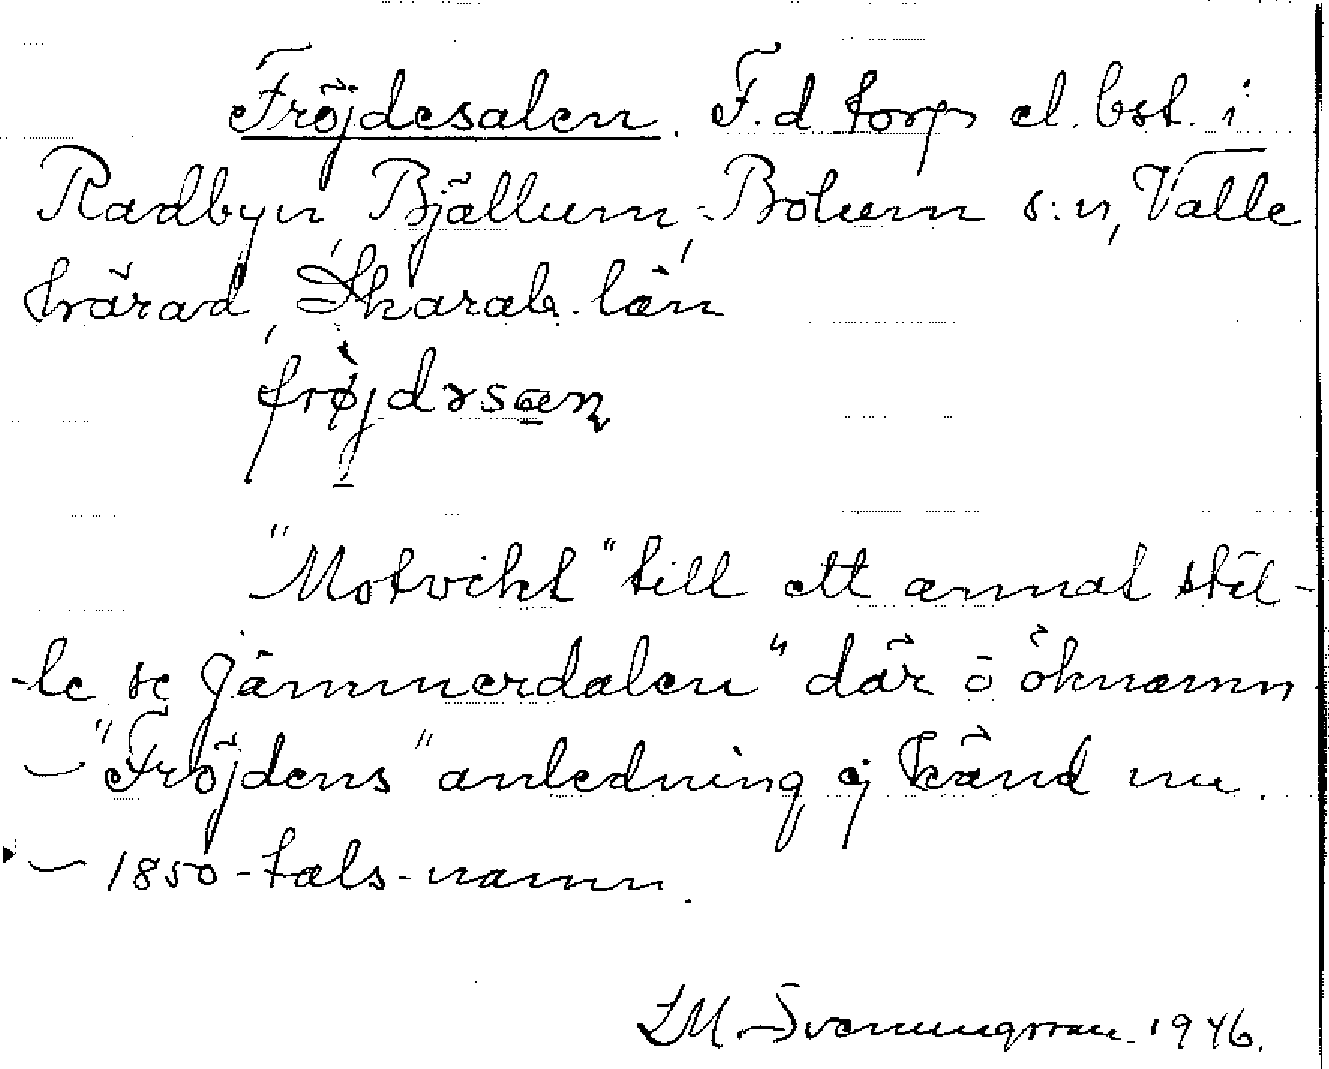 Fröjdesalen. F.d torp el. bst. i
Radbyn, Bjällum, Bolum s:n, Valle
härad, Skarab. län
frøjdəsan
"Motvikt" till ett annat stäl-
-le se Jämmerdalen" där ö öknamn
– "Fröjdens" anledning ej känd nu.
– 1850-tals-namn.
LM. Svenungsson 1946.